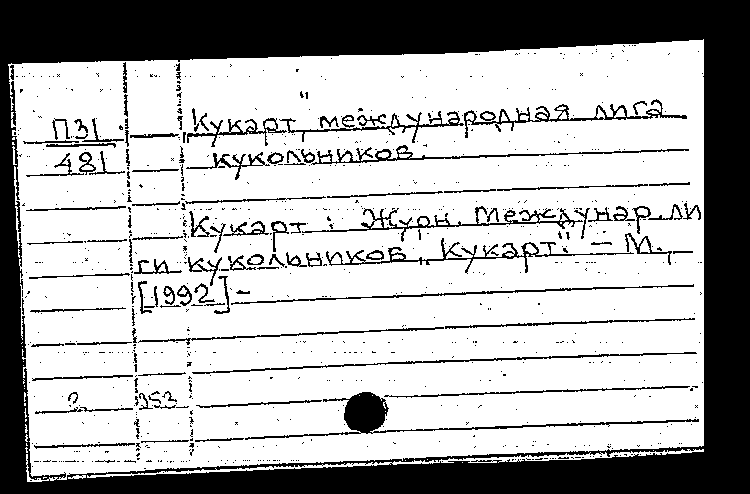 П31 „Кукарт" международная лига
481 кукольников.
Кукарт : Журн. Междунар. ли
ги кукольников „Кукарт". – М.,
[1992] –